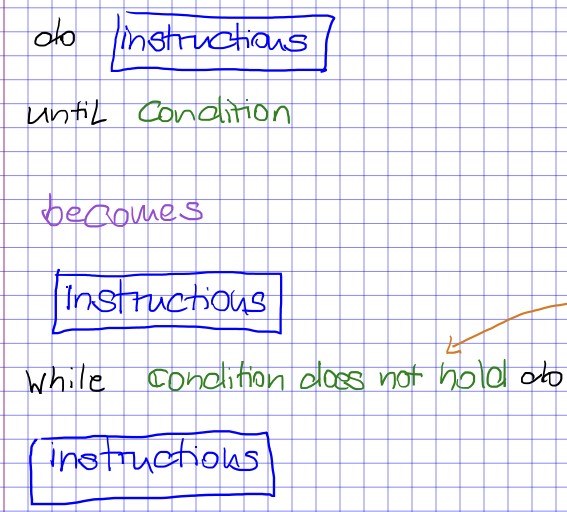 do instructions
until Condition
becomes
instructions
While condition does not hold do
instructions